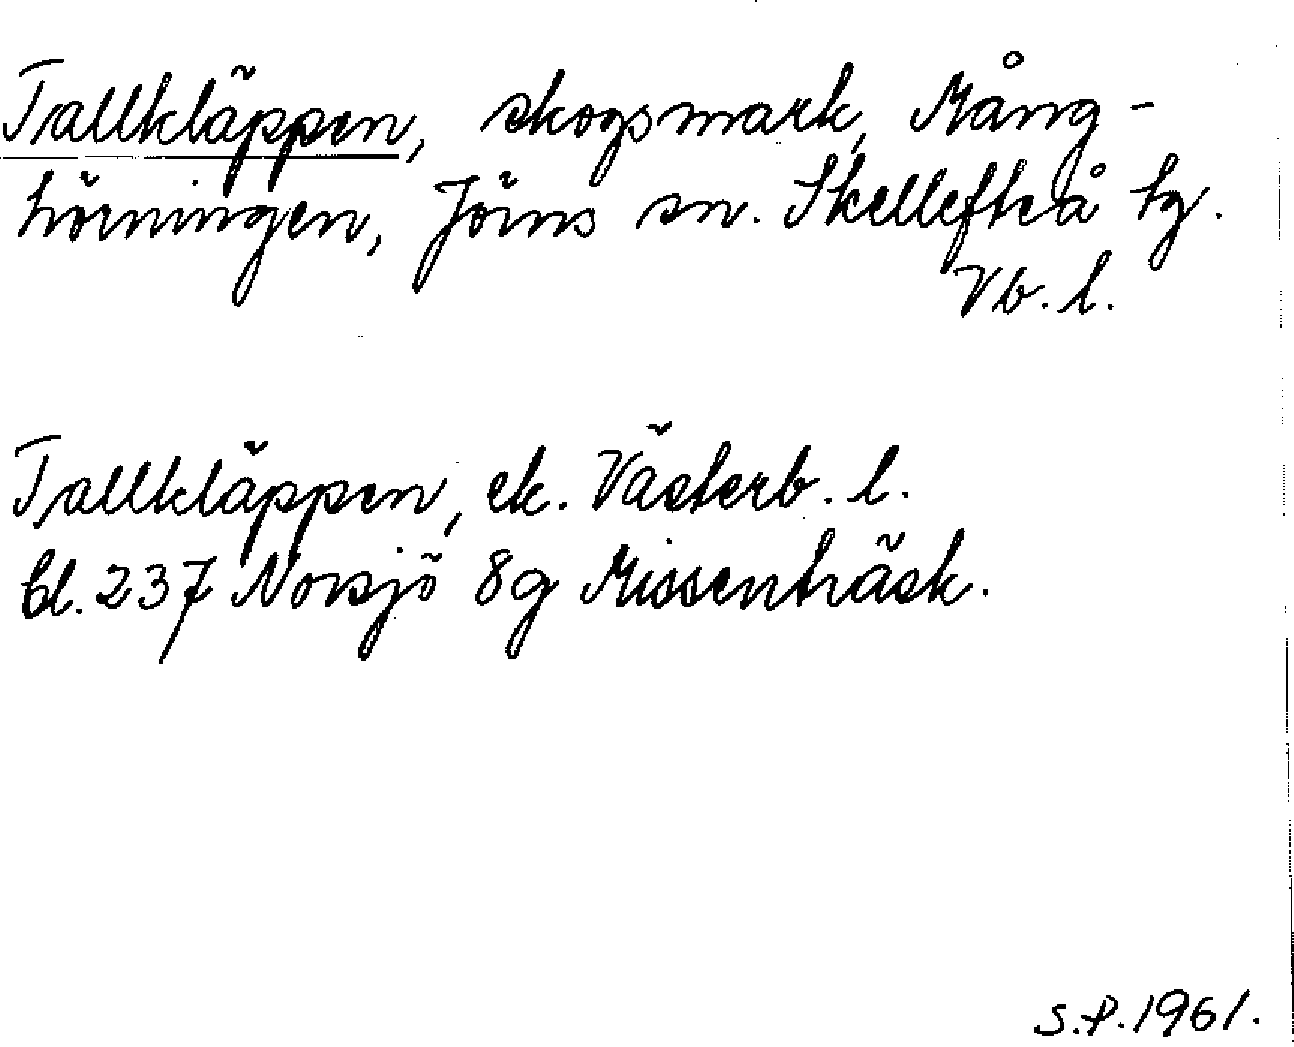 Tallkläppen, skogsmark, Mång-
hörningen, Jörns sn. Skellefteå tg.
Vb. l.
Tallkläppen, ek. Västerb. l.
bl. 237 Norsjö 8g Missenträsk.
S.P. 1961.